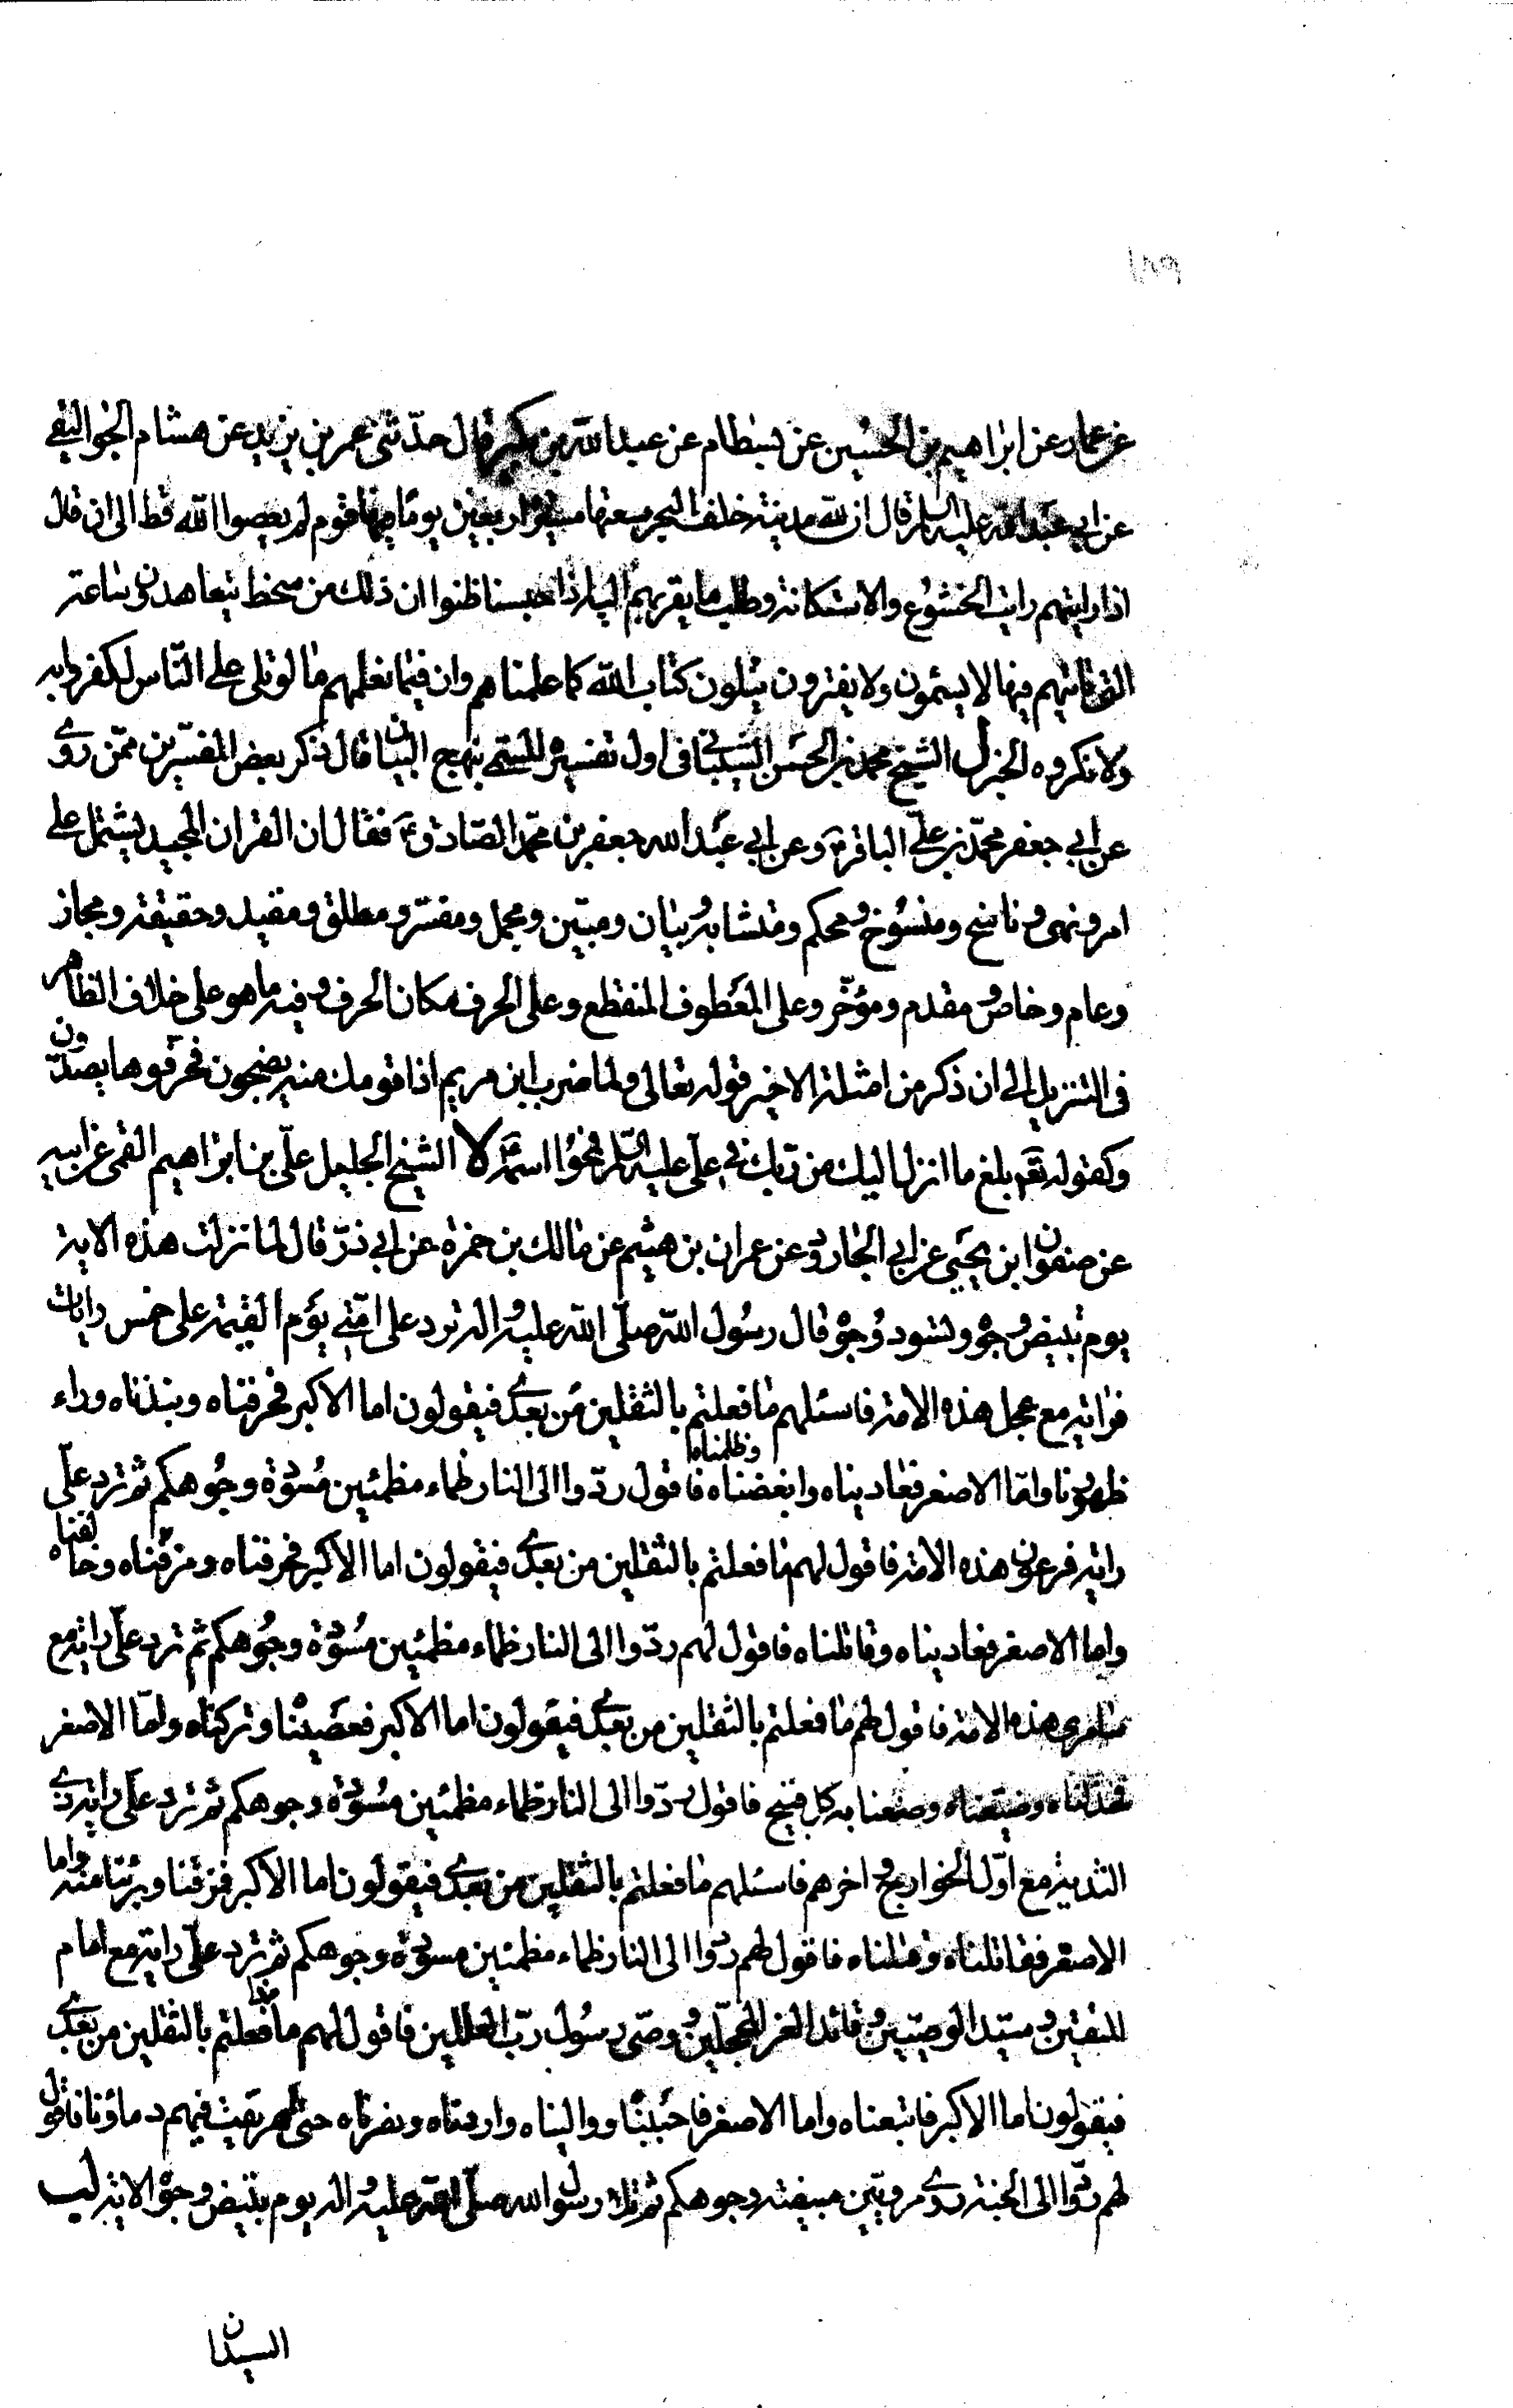 ١٨٩
عن عمار عن ابراهيم بن الحسين عن بسطام عن عبد الله بن بكير قال حدثنى عمر بن يزيد عن هشام الجواليقى
عن ابى عبد الله عليه السلم قال ان لله مدينة خلف البحر سعتها مسيرة اربعين يوما فيها قوم لم يعصوا الله قط الى ان قال
اذا رايتهم رايت الخشوع والاستكانة وطلب ما يقربهم اليه اذا حبسنا ظنوا ان ذلك من سخط يتعاهدون ساعة
التى ناتيهم فيها لا يسئمون ولا يفترون يتلون كتاب الله كما علمناهم وان فيما نعلمهم ما لو تلى على الناس لكفروا به
ولانكروه الخبر ل الشيخ محمد بن الحسن الشيبانى فى اول تفسيره المسمى بنهج البيان قال ذكر بعض المفسرين ممن روى
عن ابى جعفر محمد بن على الباقر ع وعن ابى عبد الله جعفر بن محمد الصادق ع فقال ان القران المجيد يشتمل على
امر ونهى وناسخ ومنسوخ ومحكم ومتشابه وبيان ومبين ومجمل ومفسر ومطلق ومقيد وحقيقة ومجاز
وعام وخاص ومقدم ومؤخر وعلى المعطوف المنقطع وعلى الحرف مكان الحرف وفيه ما هو على خلاف الظاهر
فى التنزيل الى ان ذكر من امثلة الاخير قوله تعالى ولما ضرب ابن مريم اذا قومك منه يضجون فحرفوها يصدون
وكقوله تعم بلغ ما انزل اليك من ربك فى على عليه السلم فمحوا اسمه لا الشيخ الجليل على بن ابراهيم القمى عن ابيه
عن صفوان ابن يحيى عن ابى الجارود عن عمران بن هيثم عن مالك بن حمزة عن ابى ذر قال لما نزلت هذه الاية
يوم تبيض وجوه وتسود وجوه قال رسول الله صلى الله عليه واله ترد على امتى يوم القيمة على خمس رايات
فراية مع عجل هذه الامة فاسئلهم ما فعلتم بالثقلين من بعدى فيقولون اما الاكبر فحرفناه ونبذناه وراء
ظهورنا واما الاصغر فعاديناه وابغضناه وظلمناه فاقول ردوا الى النار ظماء مظمئين مسودة وجوهكم ثم ترد على
راية فرعون هذه الامة فاقول لهم ما فعلتم بالثقلين من بعدى فيقولون اما الاكبر فحرفناه ومزقناه وخالفناه
واما الاصغر فعاديناه وقاتلناه فاقول لهم ردوا الى النار ظماء مظمئين مسودة وجوهكم ثم ترد على راية مع
سامرى هذه الامة فاقول لهم ما فعلتم بالثقلين من بعدى فيقولون اما الاكبر فعصيناه وتركناه واما الاصغر
فخذلناه وضيعناه وصنعنا به كل قبيح فاقول ردوا الى النار ظماء مظمئين مسودة وجوهكم ثم ترد على راية ذى
الثدية مع اول الخوارج واخرهم فاسئلهم ما فعلتم بالثقلين من بعدى فيقولون اما الاكبر فمزقنا وبرئنا منه واما
الاصغر فقاتلناه وقتلناه فاقول لهم ردوا الى النار ظماء مظمئين مسودة وجوهكم ثم ترد على راية مع امام
المتقين وسيد الوصيين وقائد الغر المحجلين ووصى رسول رب العالمين فاقول لهم ما فعلتم بالثقلين من بعدى
فيقولون اما الاكبر فاتبعناه واما الاصغر فاحببناه وواليناه وازرناه ونصرناه حتى اهريقت فيهم دماؤنا فاقول
لهم ردوا الى الجنة رواء مرويين مبيضة وجوهكم ثم تلا رسول الله صلى الله عليه واله يوم تبيض وجوه الاية ليب
السيدان